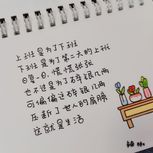 上班是为了下班
下班是为了第二天的上班
日复一日,慌慌张张
也不过是为了碎银几两
可偏偏这碎银几两
压断了世人的肩膀
这就是生活